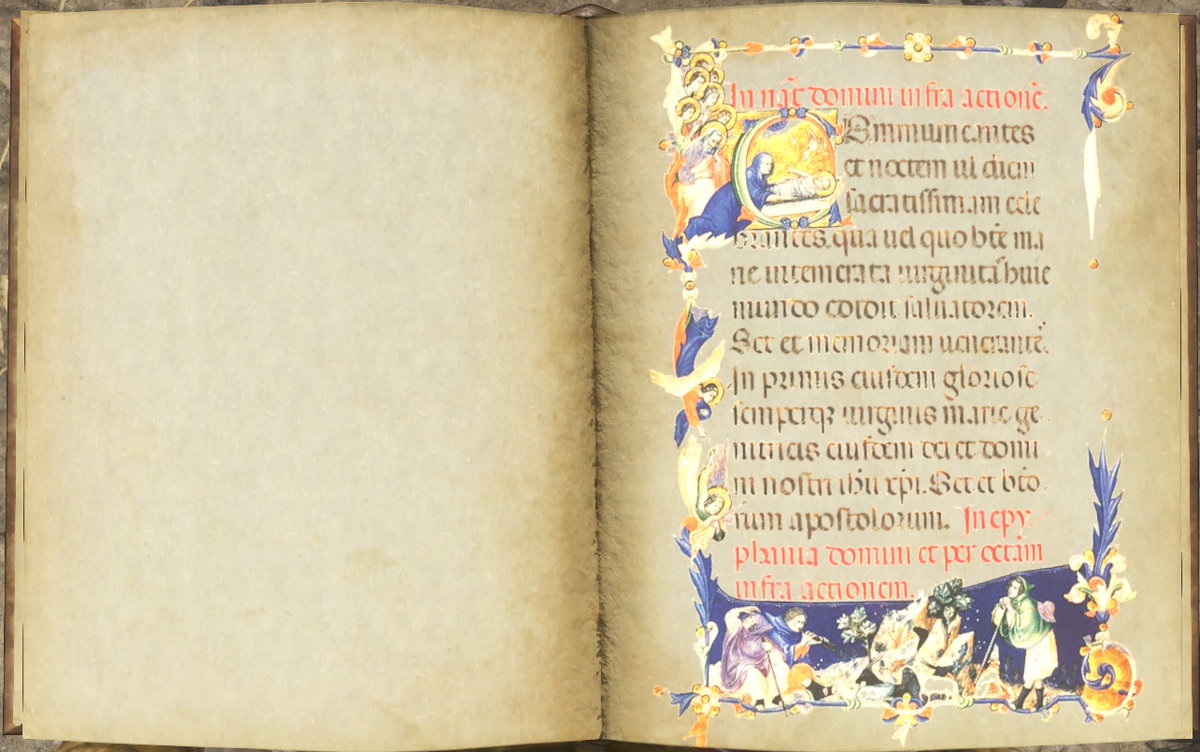 In nat̄ domini infra actionē.
Communicantes
et noctem vel diem
sacratissimam cele
brantes. qua vel quo bt̄e ma
rie intemerata virginitas huic
mundo edidit salvatorem.
Set et memoriam venerantē.
In primis eiusdem gloriose
semperq; virginis marie ge
nitricis eiusdem dei et domi
ni nostri ihū xpi. Set et bt̄o
rum apostolorum. In epy
phania domini et per octām
infra actionem.